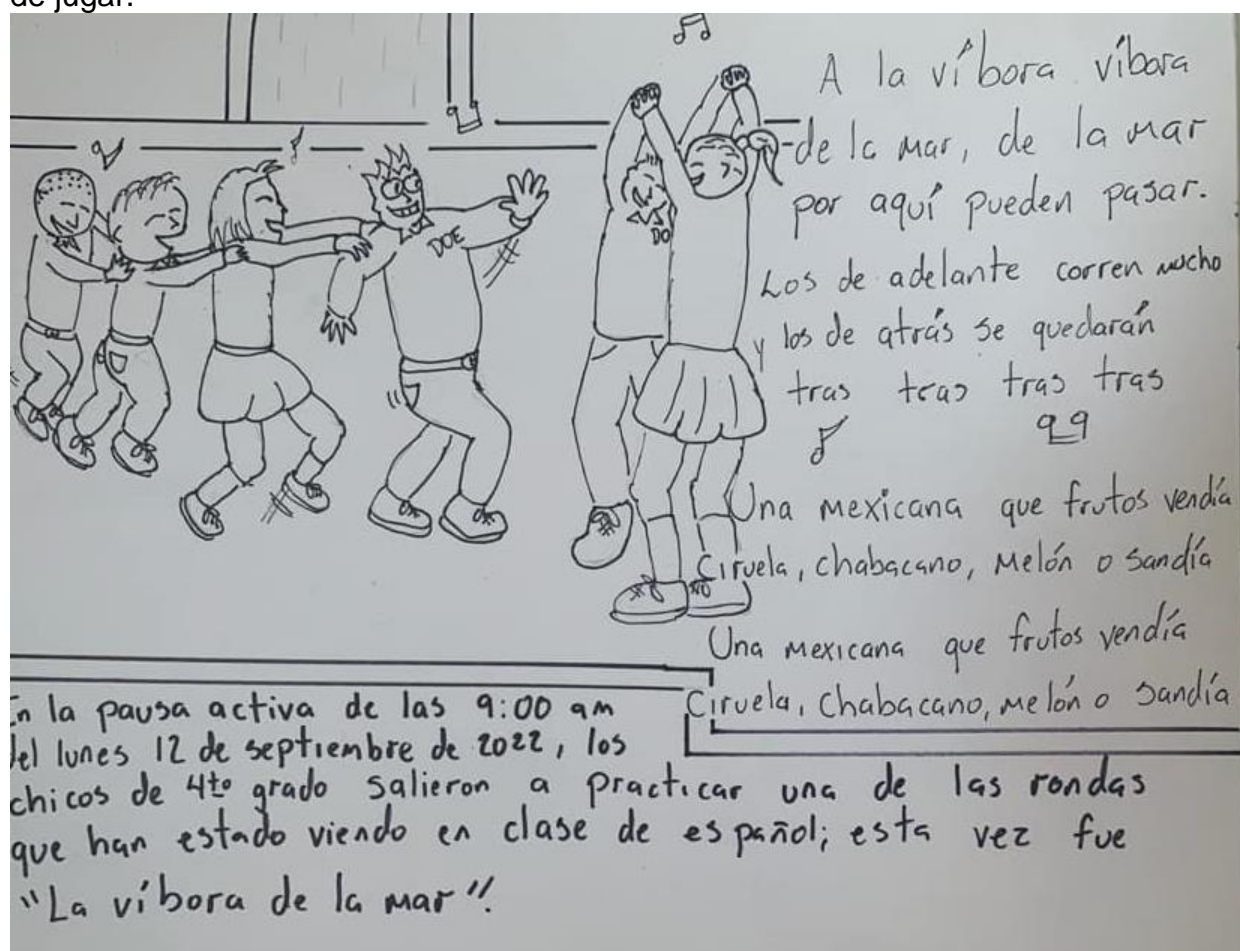 de jugar.
A la víbora víbora
de la mar, de la mar
por aquí pueden pasar.
Los de adelante corren mucho
y los de atrás se quedarán
tras tras tras tras
Una mexicana que frutos vendía
Ciruela, chabacano, melón o sandía
Una mexicana que frutos vendía
Ciruela, chabacano, melón o sandía
DOE
DO
En la pausa activa de las 9:00 am
del lunes 12 de septiembre de 2022, los
chicos de 4to grado salieron a practicar una de las rondas
que han estado viendo en clase de español; esta vez fue
"La víbora de la mar".